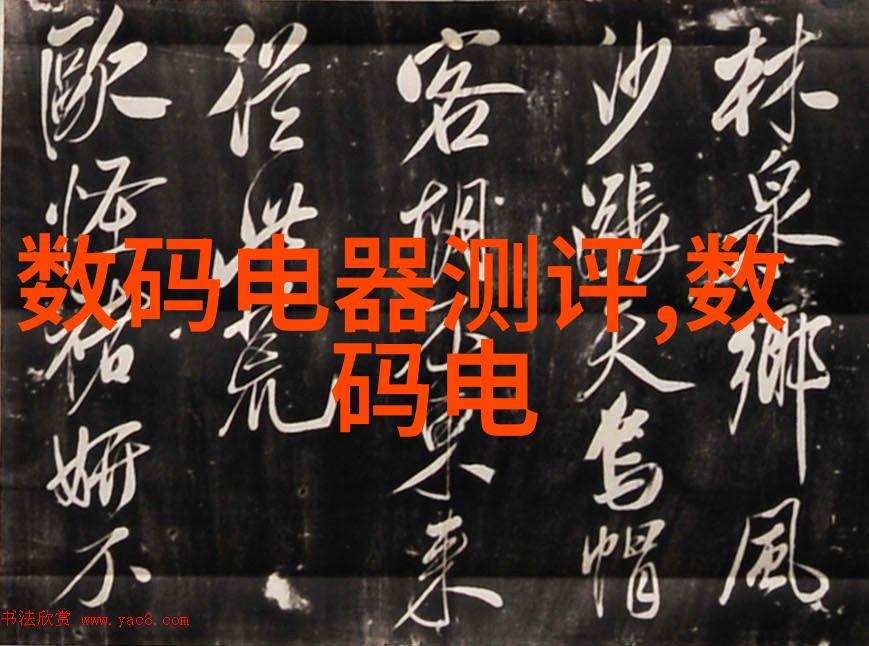 数码电器测评,数
码电
林泉鄉風
沙漲天烏帽
客胡不來
從荒
歐怪褚妍不
书法欣赏 www.yac8.com